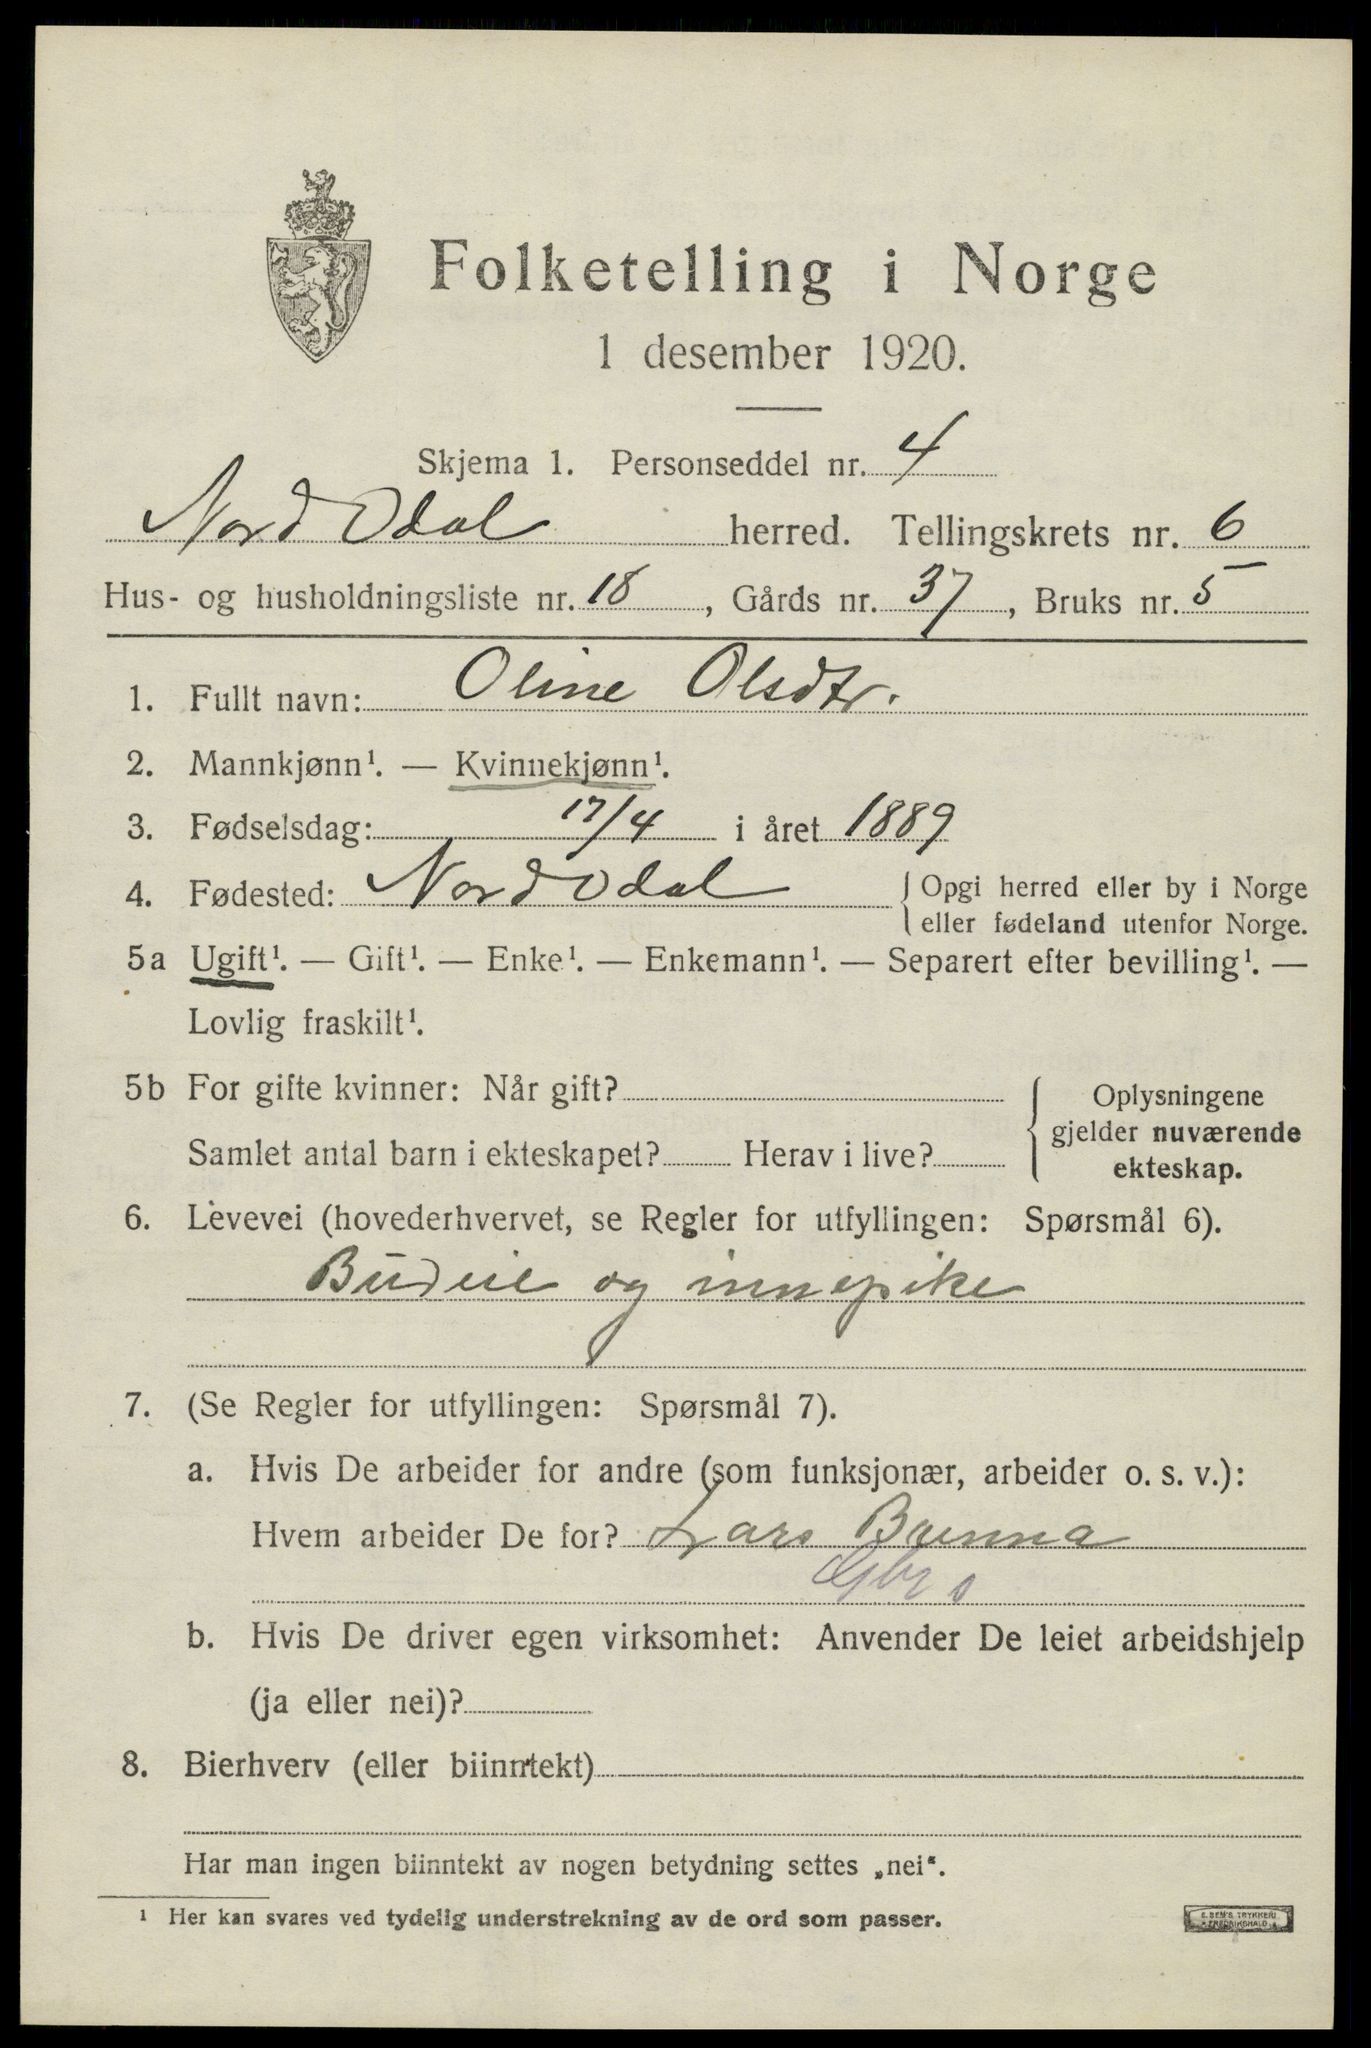 Folketelling i Norge
1 desember 1920.
Skjema 1. Personseddel nr. 4
Nord Odal herred. Tellingskrets nr. 6
Hus- og husholdningsliste nr. 18, Gårds nr. 37, Bruks nr. 5
1. Fullt navn: Oline Olsdtr.
2. Mannkjønn¹. — Kvinnekjønn¹.
3. Fødselsdag: 17/4 i året 1889
4. Fødested: Nord Odal { Opgi herred eller by i Norge
eller fødeland utenfor Norge.
5a Ugift¹. — Gift¹. — Enke¹. — Enkemann¹. — Separert efter bevilling¹. —
Lovlig fraskilt¹.
5b For gifte kvinner: Når gift? { Oplysningene
gjelder nuværende
Samlet antal barn i ekteskapet? Herav i live?
ekteskap.
6. Levevei (hovederhvervet, se Regler for utfyllingen: Spørsmål 6).
Budeie og innepike
7. (Se Regler for utfyllingen: Spørsmål 7).
a. Hvis De arbeider for andre (som funksjonær, arbeider o. s. v.):
Hvem arbeider De for? Lars Brenna
Gbr
b. Hvis De driver egen virksomhet: Anvender De leiet arbeidshjelp
(ja eller nei)?
8. Bierhverv (eller biinntekt)
Har man ingen biinntekt av nogen betydning settes „nei“.
¹ Her kan svares ved tydelig understrekning av de ord som passer.
E. SEM'S TRYKKERI
FREDRIKSHALD